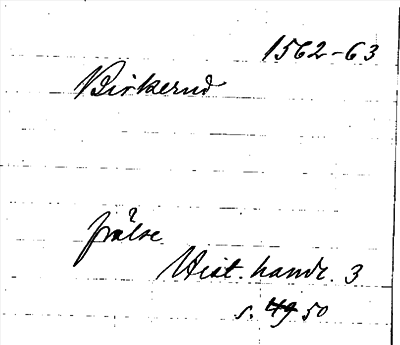 1562-63
Birkerud
frälse
Hist. handl. 3
s. 49 50